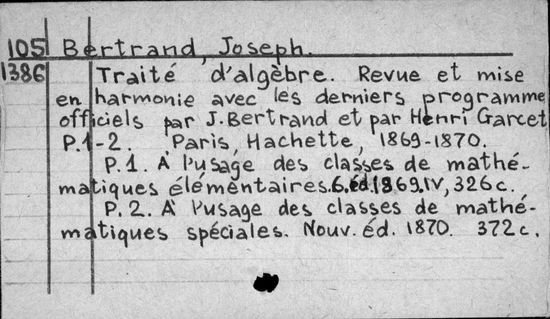 105 Bertrand, Joseph.
1386 Traité d'algèbre. Revue et mise
en harmonie avec les derniers programme
officiels par J. Bertrand et par Henri Garcet
P.1-2. Paris, Hachette, 1869-1870.
P.1. A l'usage des classes de mathé-
matiques élémentaires. 6. éd. 1869. IV, 326 c.
P.2. A l'usage des classes de mathé-
matiques spéciales. Nouv. éd. 1870. 372 c.